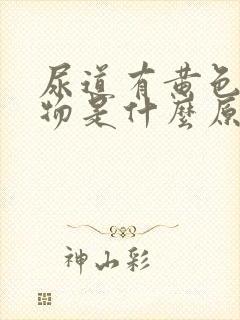 尿道有黄色
物是什麽原
神山彩